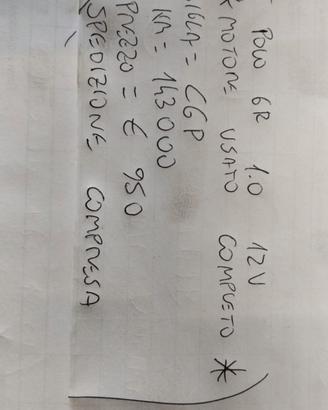 POLO 6R 1.0 12V
MOTORE USATO COMPLETO *
SIGLA = CGP
KM = 143000
PREZZO = € 950
SPEDIZIONE COMPRESA